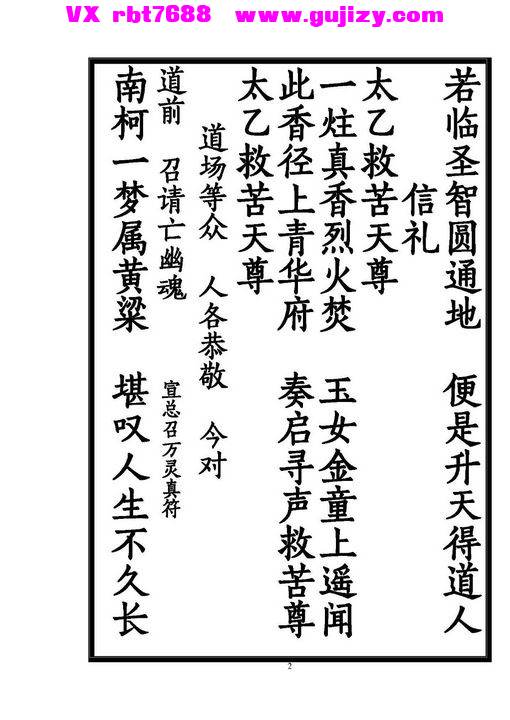 VX rbt7688 www.gujizy.com
若临圣智圆通地 便是升天得道人
信礼
太乙救苦天尊
一炷真香烈火焚 玉女金童上遥闻
此香径上青华府 奏启寻声救苦尊
太乙救苦天尊
道场等众 人各恭敬 今对
道前 召请亡幽魂 宣总召万灵真符
南柯一梦属黄粱 堪叹人生不久长
2